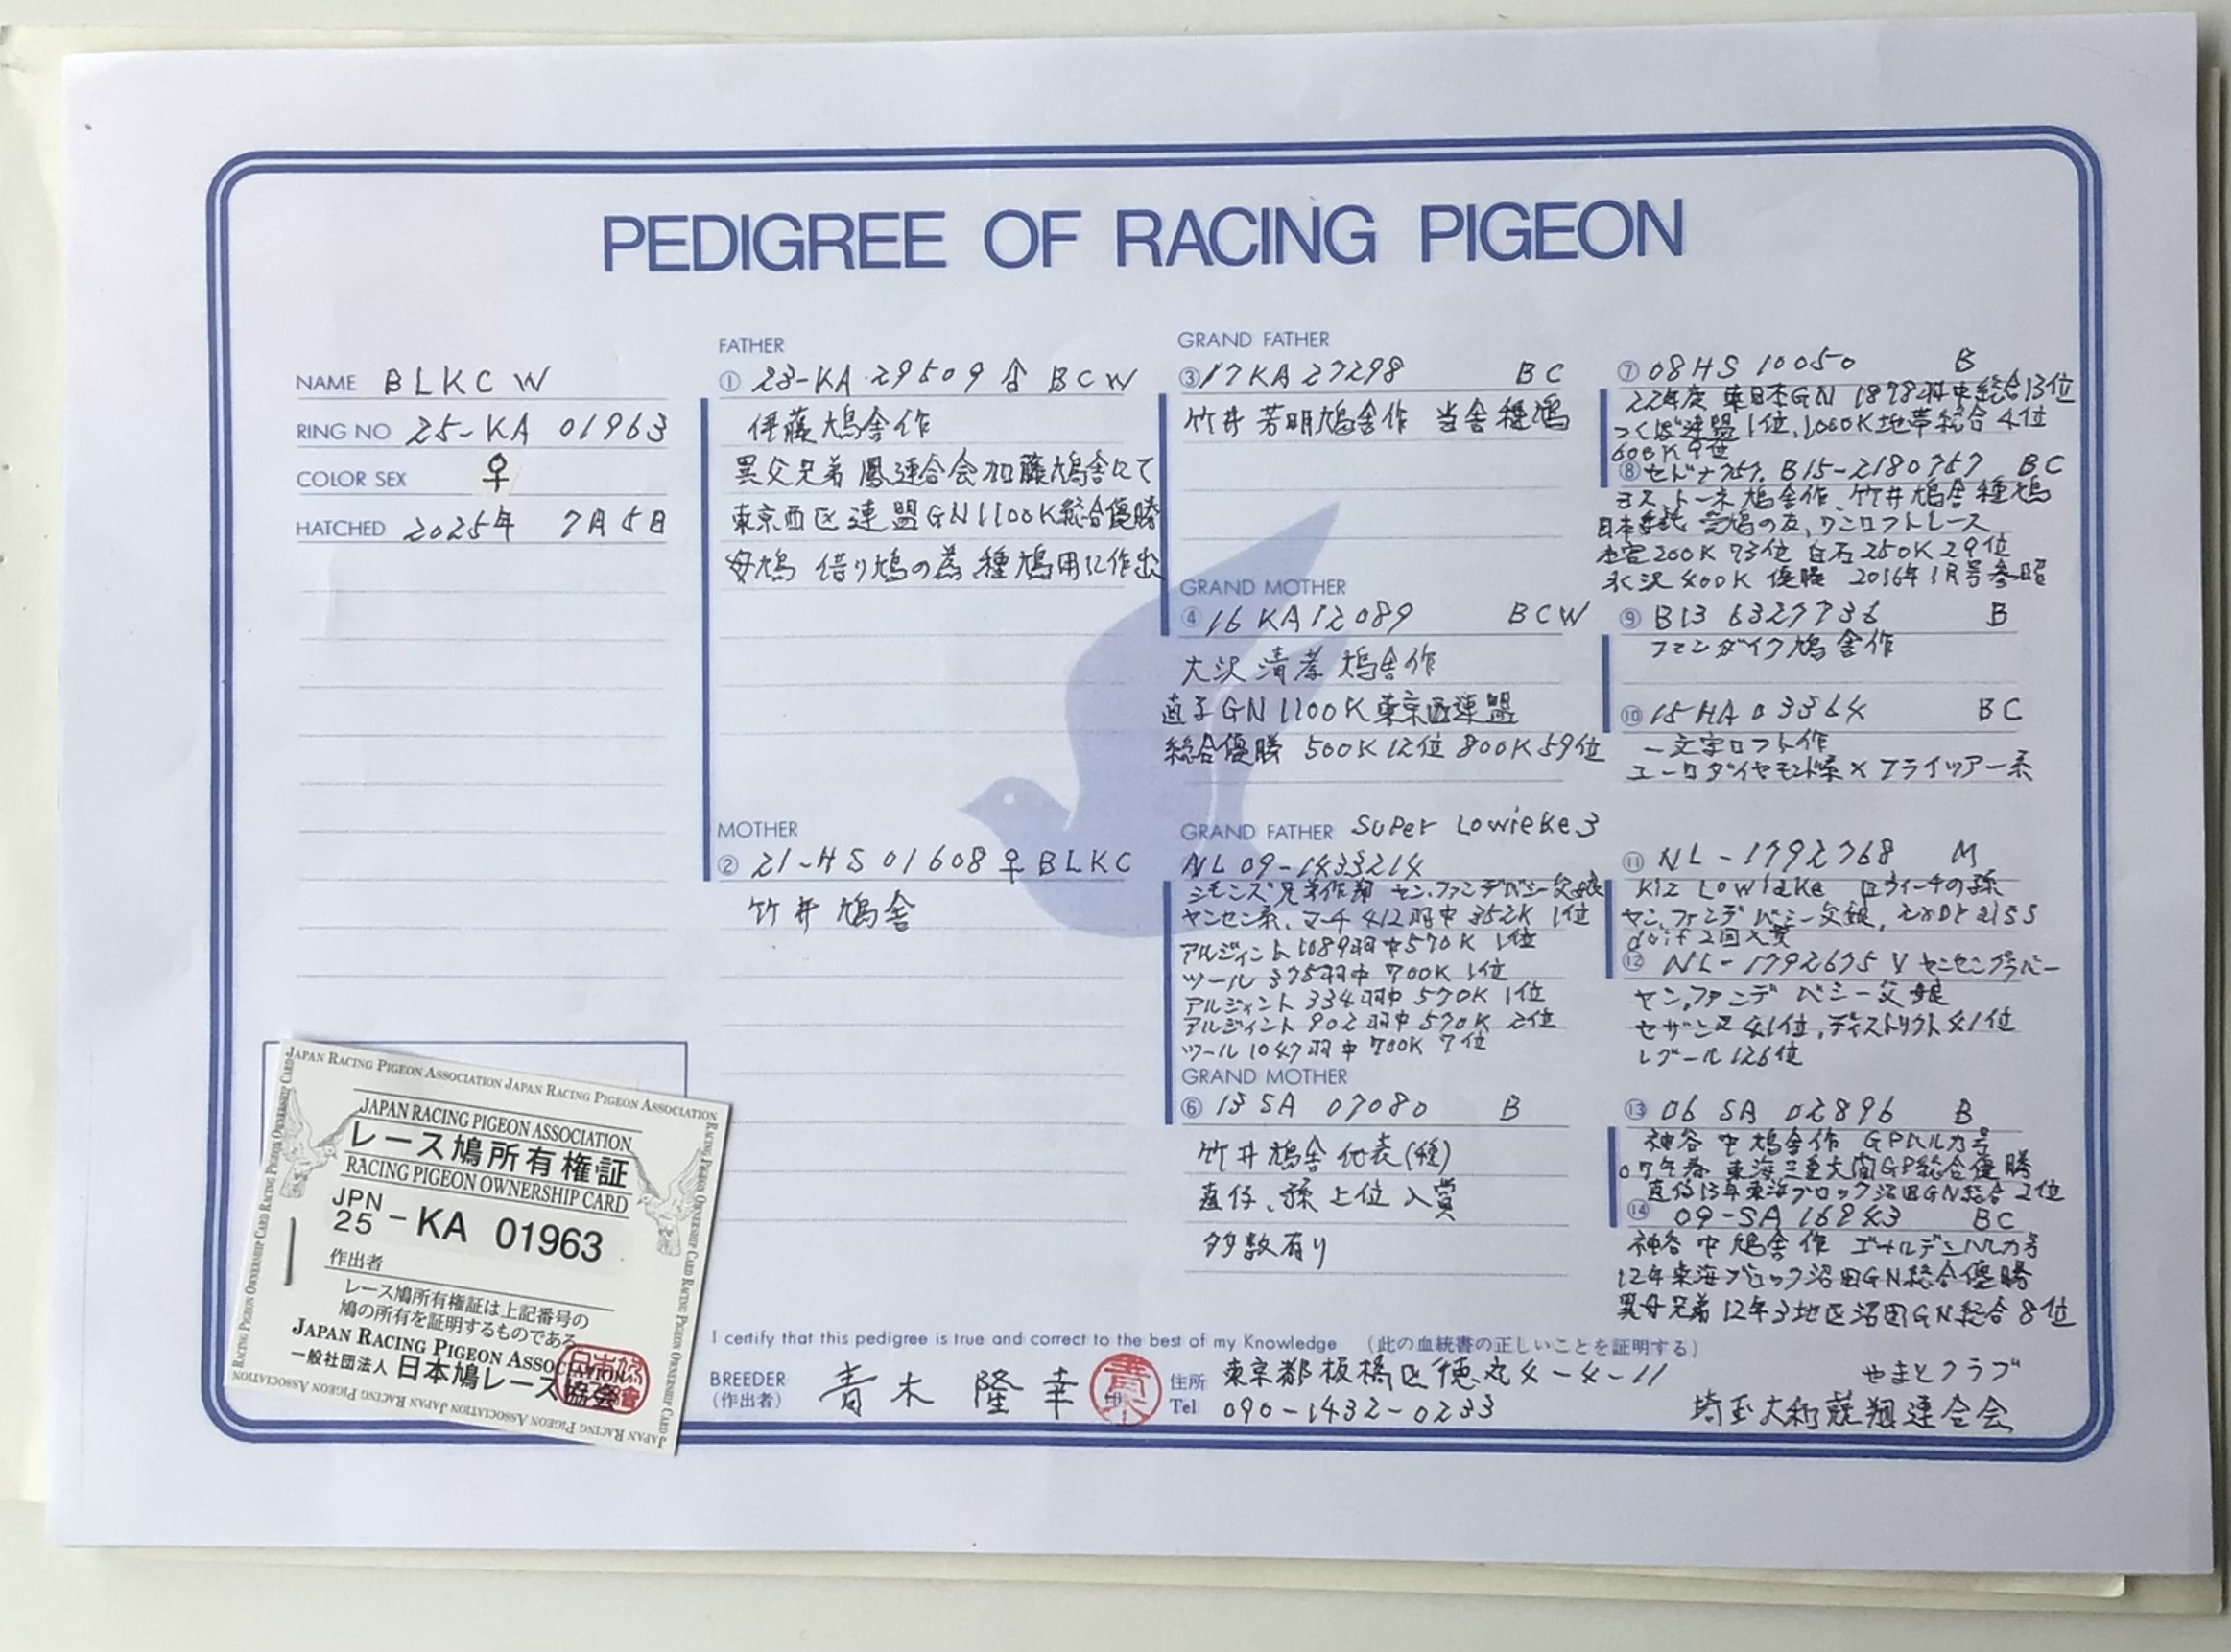 PEDIGREE OF RACING PIGEON
NAME BLKC W
RING NO 25-KA 01963
COLOR SEX ♀
HATCHED 2025年 7月5日
FATHER
① 23-KA 29509 ♂ BCW
伊藤鳩舎作
異父兄弟 鳳連合会加藤鳩舎にて
東京西区連盟GN1100K総合優勝
母鳩 借り鳩の為種鳩用に作出
MOTHER
② 21-HS 01608 ♀ BLKC
竹井鳩舎
GRAND FATHER
③ 17KA 27298 BC
竹井芳明鳩舎作 当舎種鳩
GRAND MOTHER
④ 16 KA12089 BCW
大沢清孝鳩舎作
直子GN1100K東京西連盟
総合優勝 500K12位 800K59位
GRAND FATHER Super Lowieke3
NL 09-1433214
シモンズ兄弟作翔 ヤン,ファンデパシー父娘
ヤンセン系、マーチ 412羽中352K 1位
アルジィント1089羽中570K 1位
ツール 375羽中 700K 1位
アルジィント 334羽中 570K 1位
アルジィント 902羽中 570K 2位
ツール 1047羽中 700K 7位
GRAND MOTHER
⑥ 13 SA 07080 B
竹井鳩舎代表(種)
直仔、孫上位入賞
多数有り
⑦ 08HS 10050 B
22年度 東日本GN 1878羽中総合13位
つくば連盟1位,1000K地帯総合4位
600K 9位
⑧ セドナ757. B15-2180757 BC
ヨス,トーネ鳩舎作、竹井鳩舎種鳩
日本委託 愛鳩の友,ワンロフトレース
200K 73位 白石250K29位
水沢400K 優勝 2016年1月号参照
⑨ B13 6327736 B
ファンダイク鳩舎作
⑩ 15HA03364 BC
一文字ロフト作
ユーロダイヤモンド系×フライツアー系
⑪ NL-1792768 M
Kiz Lowieke ロウィーチの孫
ヤン,ファンデ パシー父娘,
duif 2回入賞
⑫ NL-1792675 V ヤンセングラバー
ヤン,ファンデ パシー父娘
セザンヌ 41位,ディストリクト41位
レグール126位
⑬ 06 SA 02896 B
神谷 中鳩舎作 GPハルカ号
07年春 東海三重大関GP総合優勝
直仔13年東海ブロック沼田GN総合2位
⑭ 09-SA 16243 BC
神谷 中鳩舎作 ゴールデンハルカ号
12年東海ブロック沼田GN総合優勝
異母兄弟12年3地区沼田GN総合8位
I certify that this pedigree is true and correct to the best of my Knowledge (此の血統書の正しいことを証明する)
BREEDER (作出者) 青木 隆幸 印
住所 東京都板橋区徳丸4-4-11
Tel 090-1432-0233
やまとクラブ
埼玉大和競翔連合会
JAPAN RACING PIGEON ASSOCIATION JAPAN RACING PIGEON ASSOCIATION
RACING PIGEON OWNERSHIP CARD RACING PIGEON OWNERSHIP CARD
JAPAN RACING PIGEON ASSOCIATION
レース鳩所有権証
RACING PIGEON OWNERSHIP CARD
JPN
25 - KA 01963
作出者
レース鳩所有権証は上記番号の
鳩の所有を証明するものである
JAPAN RACING PIGEON ASSOCIATION
一般社団法人 日本鳩レース協会
RACING PIGEON OWNERSHIP CARD RACING PIGEON OWNERSHIP CARD
JAPAN RACING PIGEON ASSOCIATION JAPAN RACING PIGEON ASSOCIATION